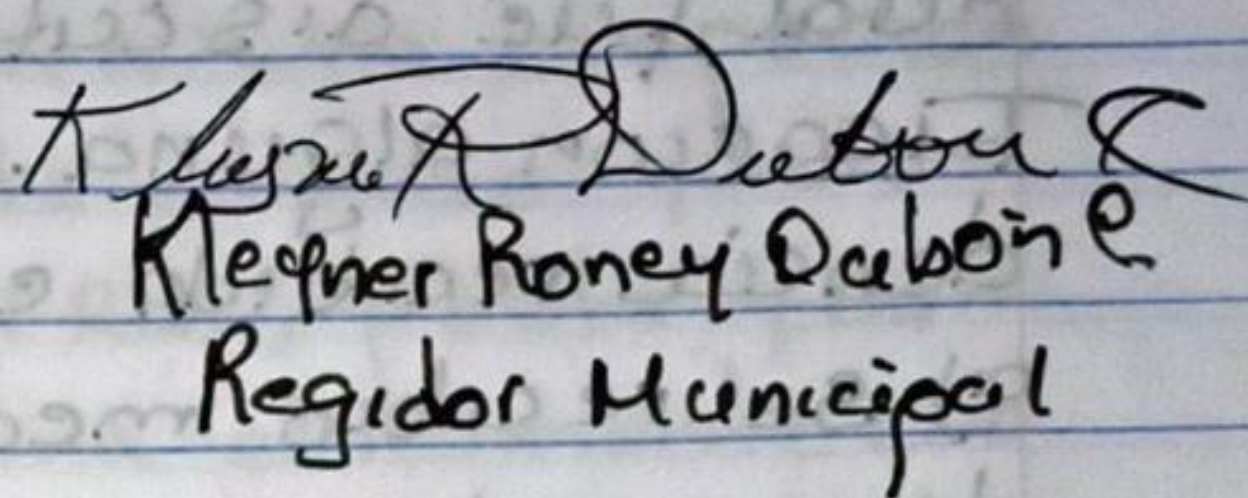 Klegner R Dubon C
Klegner Roney Dubón C
Regidor Municipal